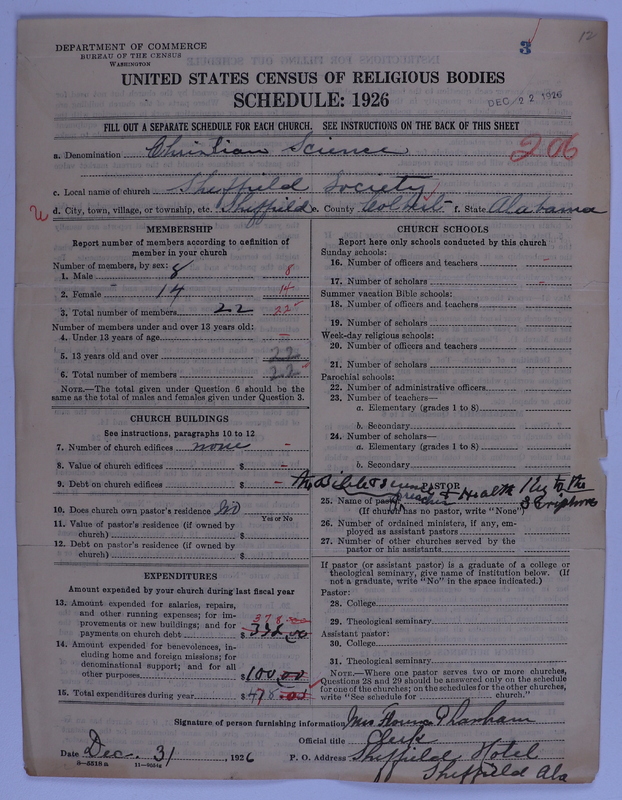 DEPARTMENT OF COMMERCE
BUREAU OF THE CENSUS
WASHINGTON
3
12
UNITED STATES CENSUS OF RELIGIOUS BODIES
SCHEDULE: 1926
DEC 22 1926
FILL OUT A SEPARATE SCHEDULE FOR EACH CHURCH. SEE INSTRUCTIONS ON THE BACK OF THIS SHEET
a. Denomination Christian Science
206
c. Local name of church Sheffield Society
d. City, town, village, or township, etc. Sheffield e. County Colbert f. State Alabama
MEMBERSHIP
Report number of members according to definition of
member in your church
Number of members, by sex:
1. Male 8 8
2. Female 14 14
3. Total number of members 22 22
Number of members under and over 13 years old:
4. Under 13 years of age –
5. 13 years old and over 22
6. Total number of members 22
NOTE.—The total given under Question 6 should be the
same as the total of males and females given under Question 3.
CHURCH BUILDINGS
See instructions, paragraphs 10 to 12
7. Number of church edifices none –
8. Value of church edifices $ –
9. Debt on church edifices $ –
10. Does church own pastor's residence No
Yes or No
11. Value of pastor's residence (if owned by
church) $
12. Debt on pastor's residence (if owned by
church) $
EXPENDITURES
Amount expended by your church during last fiscal year
13. Amount expended for salaries, repairs,
and other running expenses; for im-
provements or new buildings; and for
payments on church debt $ 378.00
14. Amount expended for benevolences, in-
cluding home and foreign missions; for
denominational support; and for all
other purposes $ 100.00
15. Total expenditures during year $ 478
CHURCH SCHOOLS
Report here only schools conducted by this church
Sunday schools:
16. Number of officers and teachers –
17. Number of scholars –
Summer vacation Bible schools:
18. Number of officers and teachers
19. Number of scholars
Week-day religious schools:
20. Number of officers and teachers
21. Number of scholars
Parochial schools:
22. Number of administrative officers
23. Number of teachers—
a. Elementary (grades 1 to 8)
b. Secondary
24. Number of scholars—
a. Elementary (grades 1 to 8)
b. Secondary
PASTOR
The Bible & Science & Health Key to the
Scriptures
25. Name of pastor
(If church has no pastor, write "None")
26. Number of ordained ministers, if any, em-
ployed as assistant pastors
27. Number of other churches served by the
pastor or his assistants
If pastor (or assistant pastor) is a graduate of a college or
theological seminary, give name of institution below. (If
not a graduate, write "No" in the space indicated.)
Pastor:
28. College
29. Theological seminary
Assistant pastor:
30. College
31. Theological seminary
NOTE.—Where one pastor serves two or more churches,
Questions 28 and 29 should be answered only on the schedule
for one of the churches; on the schedules for the other churches,
write "See schedule for church."
Signature of person furnishing information Mrs
Official title Clerk
Date Dec. 31, 1926 P. O. Address Sheffield Hotel
Sheffield Ala
8—5518a